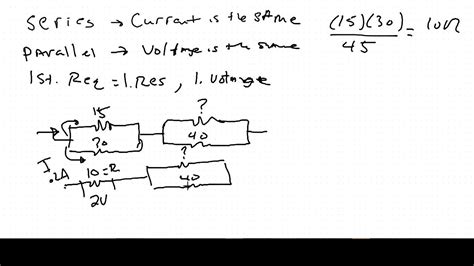 series → Current is the same
(15)(30) / 45 = 10Ω
parallel → Voltage is the same
1st. Req = 1. Res, 1. voltage
15
30
?
40
I
.2A
10=R
2V
?
40